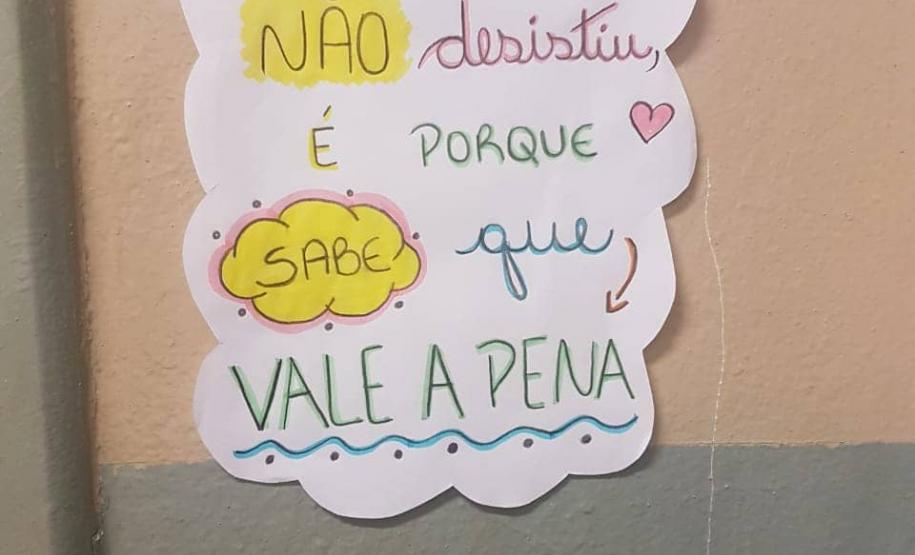 NÃO desistiu,
É PORQUE
SABE que
VALE A PENA